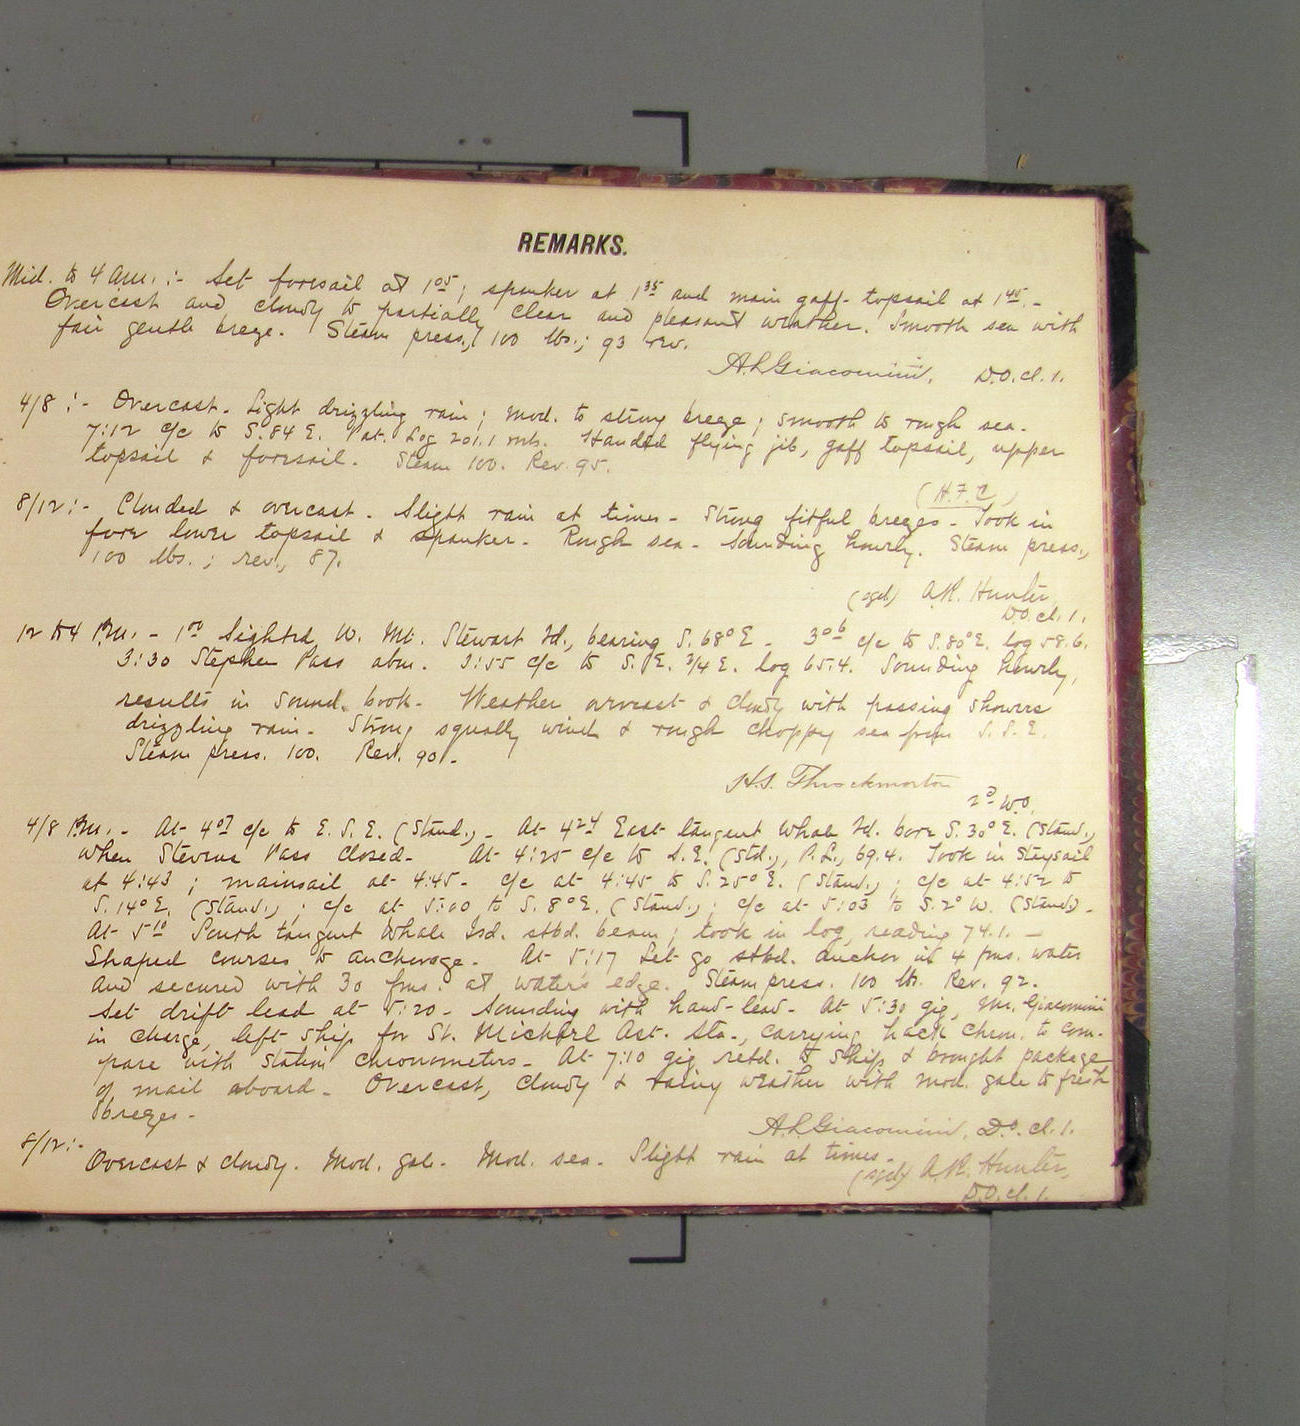 REMARKS.
Mid. to 4 am. :- Set foresail at 1 05; spanker at 1 35 and main gaff-topsail at 1 45.-
Overcast and cloudy to partially clear and pleasant weather. Smooth sea with
fair gentle breeze. Steam press., 100 lbs.; 93 rev.
A.L. Giacomini, D.O. cl. 1.
4/8 :- Overcast. Light drizzling rain; mod. to strong breeze; smooth to rough sea.
7:12 c/c to S. 84 E. Pat. Log 201.1 mls. Handed flying jib, gaff topsail, upper
topsail & foresail. Steam 100. Rev. 95.
(H.F.C.)
8/12 :- Clouded & overcast. Slight rain at times - Strong fitful breezes - Took in
fore lower topsail & spanker - Rough sea - Sounding hourly. Steam press.,
100 lbs.; rev., 87.
(sgd) A.H. Hunter,
D.O. cl. 1.
12 to 4 P.M. - 1 00 Sighted, W. Mt. Stewart Id., bearing S. 68° E - 3 06 c/c to S. 80° E. log 58.6.
3:30 Stephen Pass abm. 3:55 c/c to S. E. 3/4 E. log 65.4. Sounding hourly,
results in Sound. book - Weather overcast & cloudy with passing showers
drizzling rain - Strong squally wind & rough choppy sea from S. S. E.
Steam press. 100. Rev. 90 -
H.S. Throckmorton
2d W.O.
4/8 P.M. - At 4 07 c/c to E. S. E. (Stand.) - At 4 24 East tangent Whale Id. bore S. 30° E. (Stand.)
when Stevens Pass closed - At 4:25 c/c to S.E. (Std.), P.L., 69.4. Took in Staysail
at 4:43; mainsail at 4:45 - c/c at 4:45 to S. 25° E. (Stand.); c/c at 4:52 to
S. 14° E. (Stand.); c/c at 5:00 to S. 8° E. (Stand.); c/c at 5:03 to S. 2° W. (Stand) -
At 5 10 South tangent Whale Isd. stbd. beam; took in log, reading 74.1. -
Shaped courses to anchorage - At 5:17 Let go stbd. anchor in 4 fms. water
and secured with 30 fms. at water's edge. Steam press. 100 lbs. Rev. 92.
Set drift lead at 5:20 - Sounding with hand-lead - At 5:30 gig, Mr. Giacomini
in charge, left ship for St. Michael Ast. Sta., carrying hack chron. to com-
pare with Station chronometers - At 7:10 gig retd. to ship & brought package
of mail aboard - Overcast, cloudy & rainy weather with mod. gale to fresh
breezes -
A.L. Giacomini, D.O. cl. 1.
8/12 :-
Overcast & cloudy. Mod. gale. Mod. sea. Slight rain at times.
(sgd) A.H. Hunter,
D.O. cl. 1.